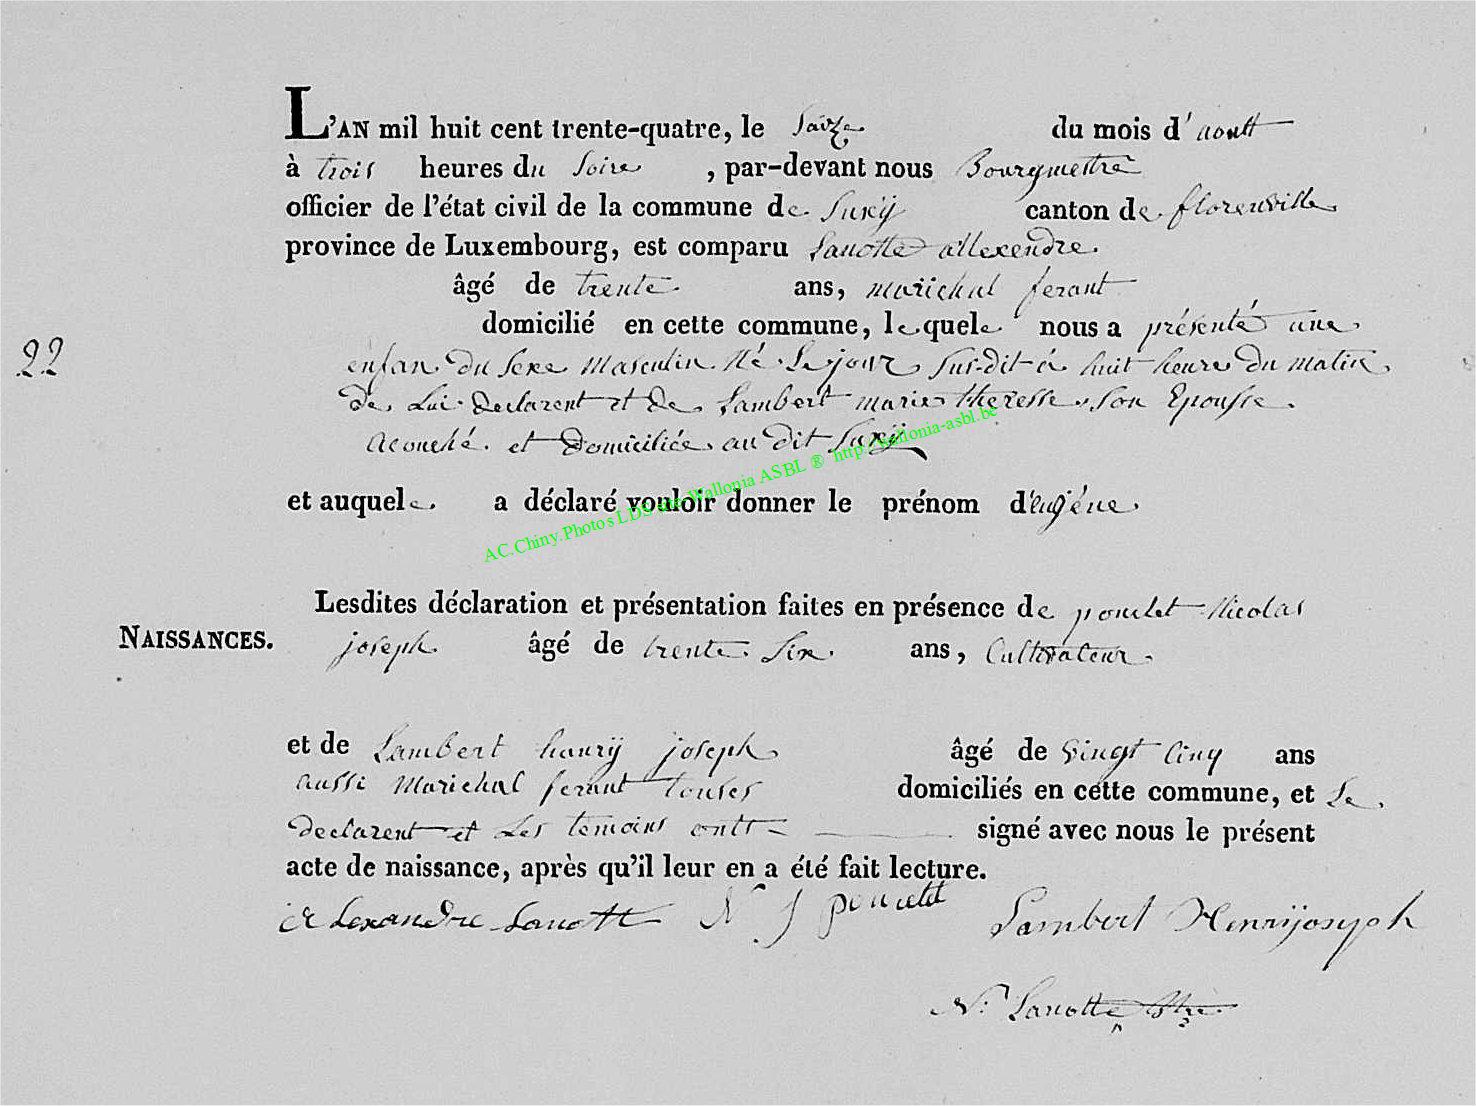 L'AN mil huit cent trente-quatre, le Saize du mois d'aoutt
à trois heures du Soire , par-devant nous Bourgmestre
officier de l'état civil de la commune de Suxÿ canton de florenville
province de Luxembourg, est comparu Lanotte allexendre
âgé de trente ans, marichal ferant
domicilié en cette commune, lequele nous a présenté une
22
enfan du Sexe masculin Né Le jour Sus-dit à huit heure du matin
de Lui declarent et de Lambert marie theresse Son Epousse
acouché et Domiciliée au dit Suxÿ
AC.Chiny.Photos LDS site Wallonia ASBL ® http://wallonia-asbl.be
et auquele a déclaré vouloir donner le prénom d'eugéne
Lesdites déclaration et présentation faites en présence de poncelet Nicolas
NAISSANCES.
joseph âgé de trente Six ans, Cultivateur
et de Lambert hanrÿ joseph âgé de vingt Cinq ans
aussi Marichal ferant touses domiciliés en cette commune, et Le
declarent et Les temoins onts signé avec nous le présent
acte de naissance, après qu'il leur en a été fait lecture.
alexandre Lanott N J poncelet Lambert Henrijoseph
N. Lanotte